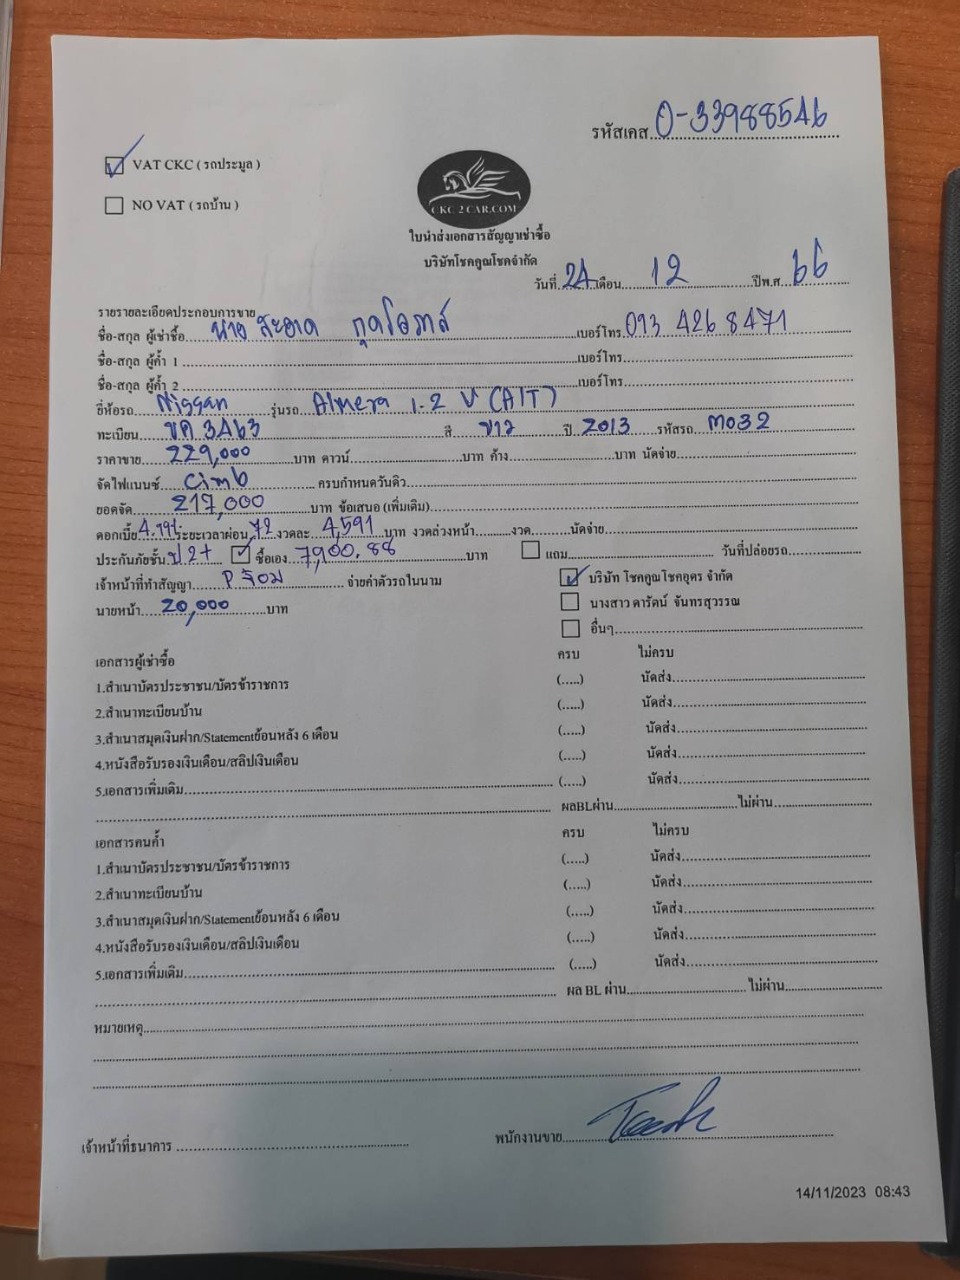 รหัสเคส 0-33988546
VAT CKC ( รถประมูล )
NO VAT ( รถบ้าน )
CKC 2 CAR.COM
ใบนำส่งเอกสารสัญญาเช่าซื้อ
บริษัทโชคคูณโชคจำกัด
วันที่ 24 เดือน 12 ปีพ.ศ. 66
รายรายละเอียดประกอบการขาย
ชื่อ-สกุล ผู้เช่าซื้อ นาย สะอาด กุดโอภาส เบอร์โทร 093 426 8471
ชื่อ-สกุล ผู้ค้ำ 1 เบอร์โทร
ชื่อ-สกุล ผู้ค้ำ 2 เบอร์โทร
ยี่ห้อรถ Nissan รุ่นรถ Almera 1.2 V (A/T)
ทะเบียน ขค 3463 สี ขาว ปี 2013 รหัสรถ M032
ราคาขาย 229,000 บาท ดาวน์ บาท ค้าง บาท นัดจ่าย
จัดไฟแนนซ์ cimb ครบกำหนดวันดิว
ยอดจัด 217,000 บาท ข้อเสนอ (เพิ่มเติม)
ดอกเบี้ย ระยะเวลาผ่อน 72 งวดละ 4,591 บาท งวดล่วงหน้า งวด นัดจ่าย
ประกันภัยชั้น ป 2+ ซื้อเอง 7,900.88 บาท แถม วันที่ปล่อยรถ
เจ้าหน้าที่ทำสัญญา จ่ายค่าตัวรถในนาม บริษัท โชคคูณโชคอุดร จำกัด
นายหน้า 20,000 บาท นางสาว ดารัตน์ จันทรสุวรรณ
อื่นๆ
เอกสารผู้เช่าซื้อ ครบ ไม่ครบ
1.สำเนาบัตรประชาชน/บัตรข้าราชการ (.....) นัดส่ง
2.สำเนาทะเบียนบ้าน (.....) นัดส่ง
3.สำเนาสมุดเงินฝาก/Statementย้อนหลัง 6 เดือน (.....) นัดส่ง
4.หนังสือรับรองเงินเดือน/สลิปเงินเดือน (.....) นัดส่ง
5.เอกสารเพิ่มเติม (.....) นัดส่ง
ผลBLผ่าน ไม่ผ่าน
เอกสารคนค้ำ ครบ ไม่ครบ
1.สำเนาบัตรประชาชน/บัตรข้าราชการ (.....) นัดส่ง
2.สำเนาทะเบียนบ้าน (.....) นัดส่ง
3.สำเนาสมุดเงินฝาก/Statementย้อนหลัง 6 เดือน (.....) นัดส่ง
4.หนังสือรับรองเงินเดือน/สลิปเงินเดือน (.....) นัดส่ง
5.เอกสารเพิ่มเติม (.....) นัดส่ง
ผล BL ผ่าน ไม่ผ่าน
หมายเหตุ
เจ้าหน้าที่ธนาคาร พนักงานขาย
14/11/2023 08:43